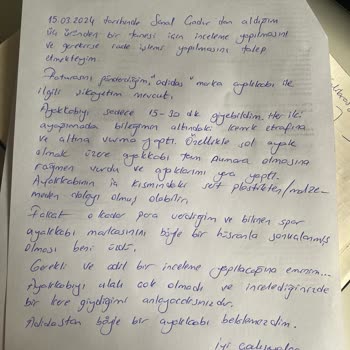 15.03.2024 tarihinde Sanal Cadde'den aldığım
üç üründen bir tanesi için inceleme yapılmasını
ve gerekirse iade işlemi yapılmasını talep
etmekteyim.
Faturasını gönderdiğim, "adidas" marka ayakkabı ile
ilgili şikayetim mevcut.
Ayakkabıyı sadece 15-20 dk giyebildim. Her iki
ayağımada bileğimin altındaki kemik etrafına
ve altına vurma yaptı. Özellikle sol ayak
olmak üzere ayakkabı tam numara olmasına
rağmen vurdu ve ayaklarımı yara yaptı.
Ayakkabının iç kısmındaki sert plastikten/malze-
meden dolayı olmuş olabilir.
Fakat o kadar para verdiğim ve bilinen spor
ayakkabı markasının böyle bir hüsranla sonuçlanmış
olması beni üzdü.
Gerekli ve adil bir inceleme yapılacağına eminim...
Ayakkabıyı alalı çok olmadı ve incelediğinizde
bir kere giydiğimi anlayacaksınızdır.
Adidastan böyle bir ayakkabı beklemezdim.
İyi çalışmalar